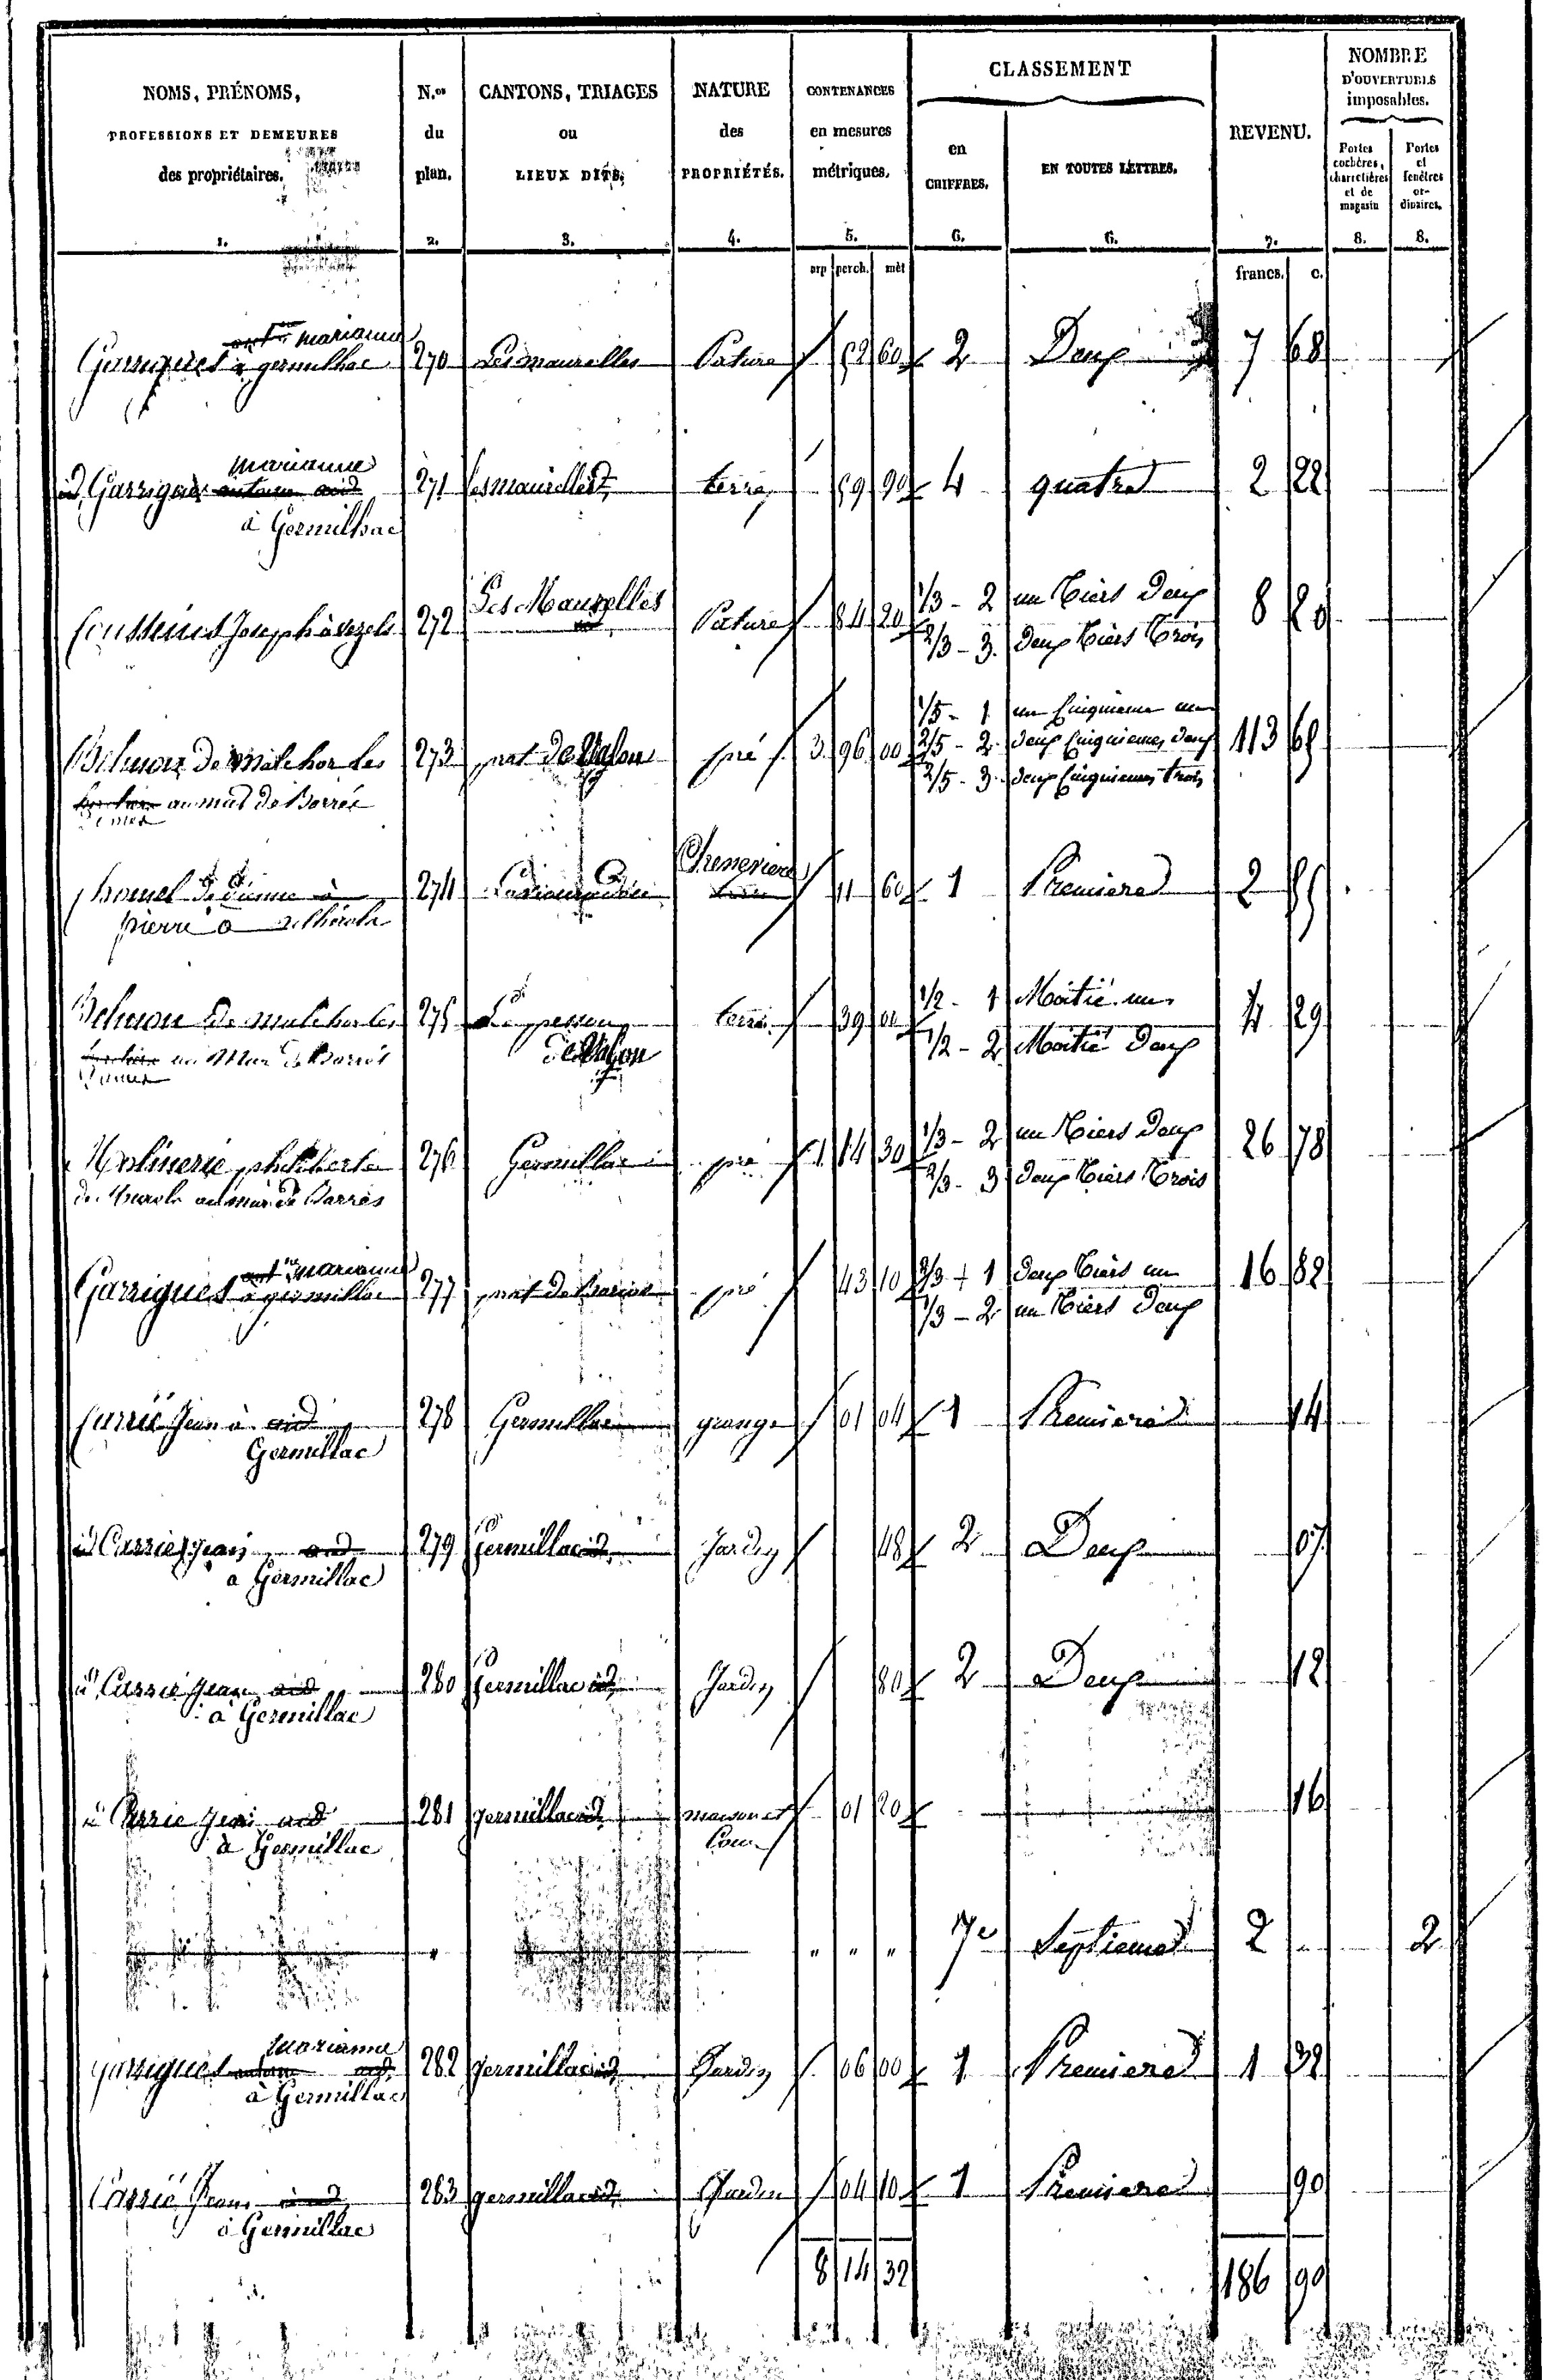 NOMS, PRÉNOMS,
PROFESSIONS ET DEMEURES
des propriétaires.
1.
N.os
du
plan.
2.
CANTONS, TRIAGES
ou
LIEUX DITS.
3.
NATURE
des
PROPRIÉTÉS.
4.
CONTENANCES
en mesures
métriques.
5.
arp perch. mèt
CLASSEMENT
en
CHIFFRES.
6.
EN TOUTES LETTRES.
6.
REVENU.
7.
francs. c.
NOMBRE
D'OUVERTURES
imposables.
Portes
cochères,
charretières
et de
magasin
8.
Portes
et
fenêtres
or-
dinaires.
8.
ant.ne marianne
Garrigues à germilhac 270 Les maurelles Pature 52 60 2 Deux 7 68
marianne
id Garrigues antoine aid 271 les maurelles id terre 59 90 4 quatre 2 22
à Germilhac
Joseph à vezels 272 Les Maurelles Pature 84 20 1/3 - 2 un Tiers Deux 8 20
2/3 - 3 deux Tiers Trois
1/5 - 1 un Cinquieme un
de malchor les 273 prat de Valon pré 3 96 00 2/5 - 2 deux Cinquiemes deux 113 65
2/5 - 3 deux Cinquiemes trois
au mur de Barrés
Cheneviere
274 11 60 1 Premiere 2 55
pierre à
de malchor les 275 terre 39 00 1/2 - 1 Moitié un 4 29
de Valon 1/2 - 2 Moitié Deux
au Mur de Barrés
Molinerie philiberte 276 Germillac pré 1 14 30 1/3 - 2 un Tiers Deux 26 78
au mur de Barrés 2/3 - 3 deux Tiers Trois
ant.ne marianne
Garrigues à germillac 277 prat de pré 43 10 2/3 + 1 deux Tiers un 16 82
1/3 - 2 un Tiers Deux
Currié Jean à aid 278 Germillac grange 01 04 1 Premiere 14
Germillac
id Currié Jean aid 279 germillac id Jardin 48 2 Deux 07
a Germillac
id Currié Jean aid 280 germillac id Jardin 80 2 Deux 12
à Germillac
id Currié Jean aid 281 germillac id maison et 01 20 16
à Germillac Cour
" " " " 7e Septieme 2 " 2
marianne
garrigues antoine aid 282 germillac id Jardin 06 00 1 Premiere 1 32
à Germillac
Currié Jean aid 283 germillac id Jardin 04 10 1 Premiere 90
à Germillac
8 14 32 186 90